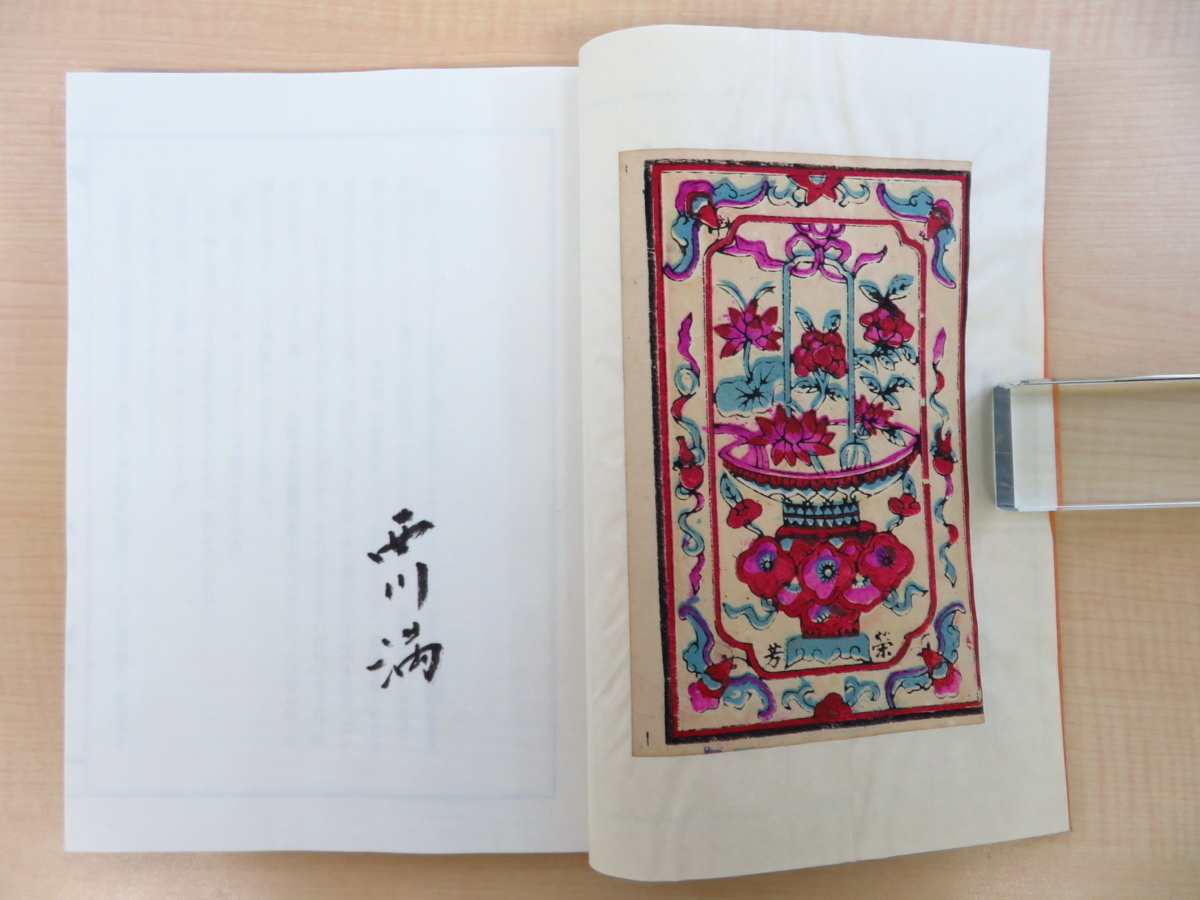 西川満
榮芳